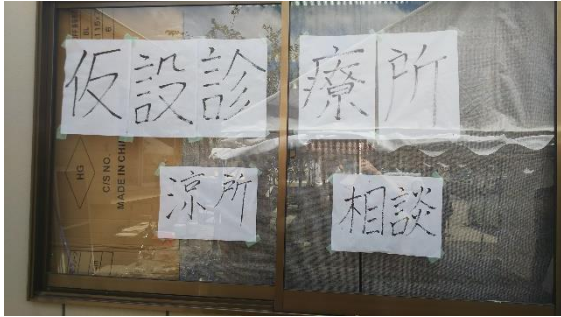 仮設診療所
涼所
相談
HG
C/S NO.
MADE IN CHI